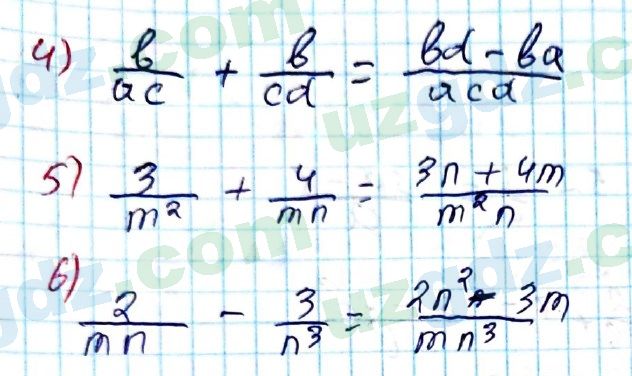 4) b/ac + b/cd = bd - ba/acd
5) 3/m² + 4/mn = 3n + 4m/m²n
6) 2/mn - 3/n³ = 2n² - 3m/mn³
uzgdz.com